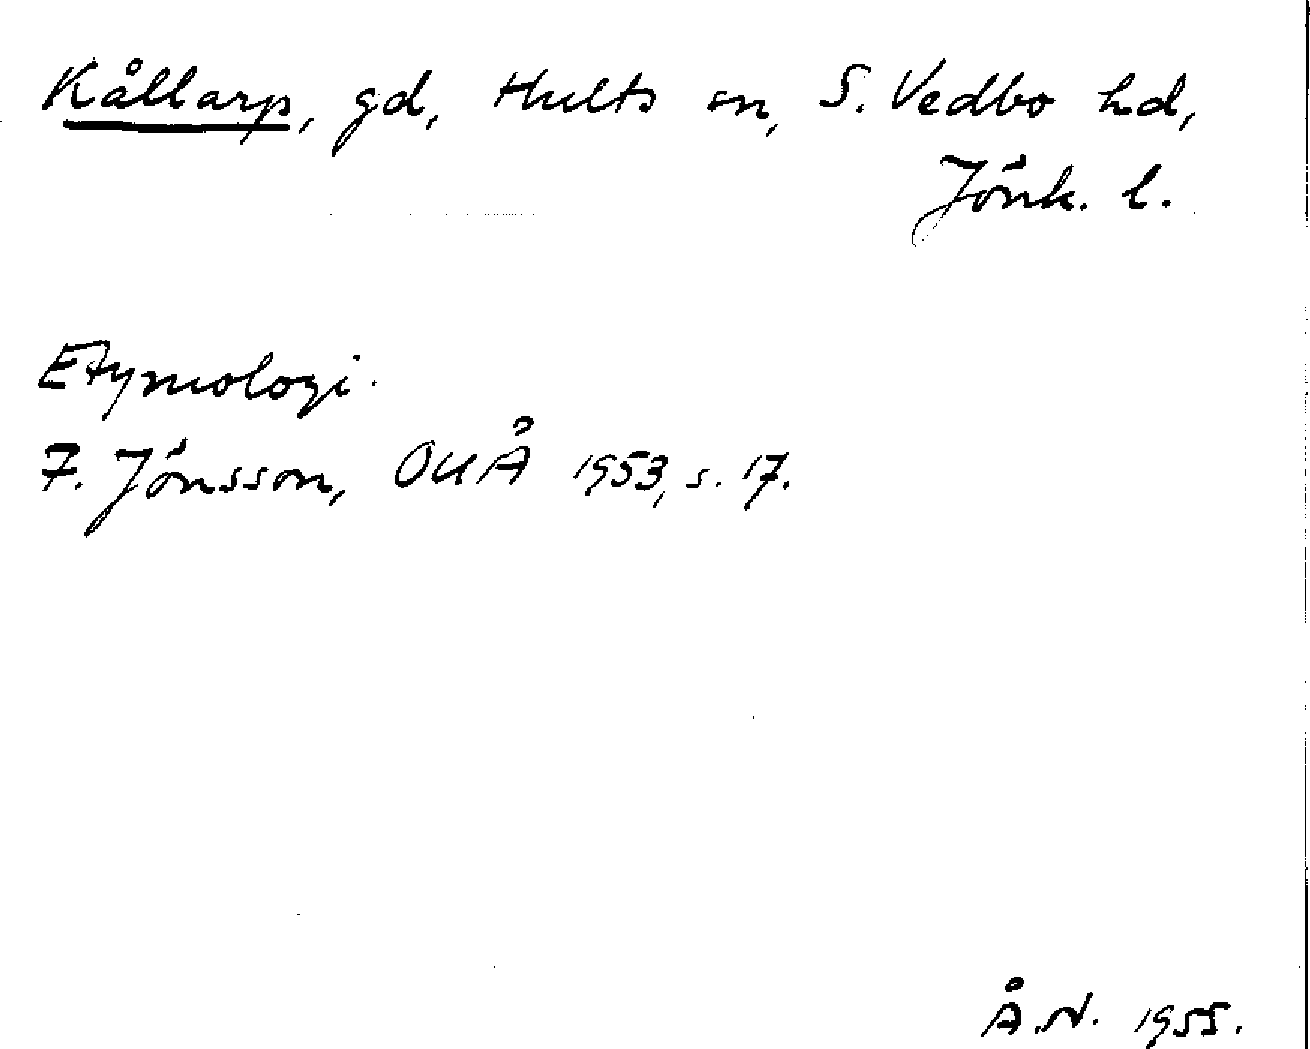 Kållarp, gd, Hults sn, S. Vedbo hd,
Jönk. l.
Etymologi.
F. Jönsson, OUÅ 1953, s. 17.
Å.N. 1955.